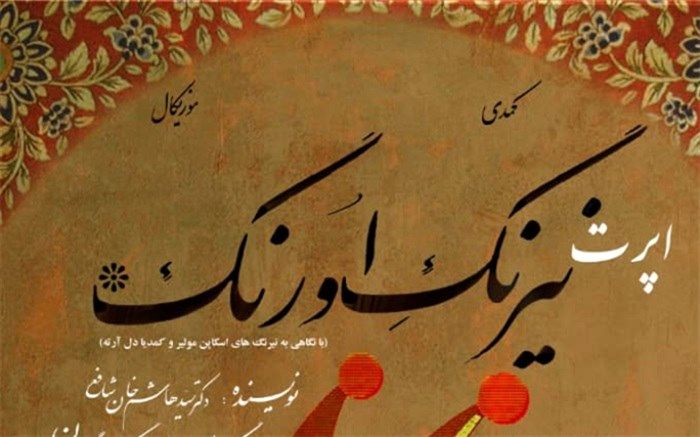 کمدی موزیکال
اپرت
نیرنگ اورنگ
(با نگاهی به نیرنگ های اسکاپن مولیر و کمدیا دل آرته)
نویسنده : دکتر سید هاشم خان شافع